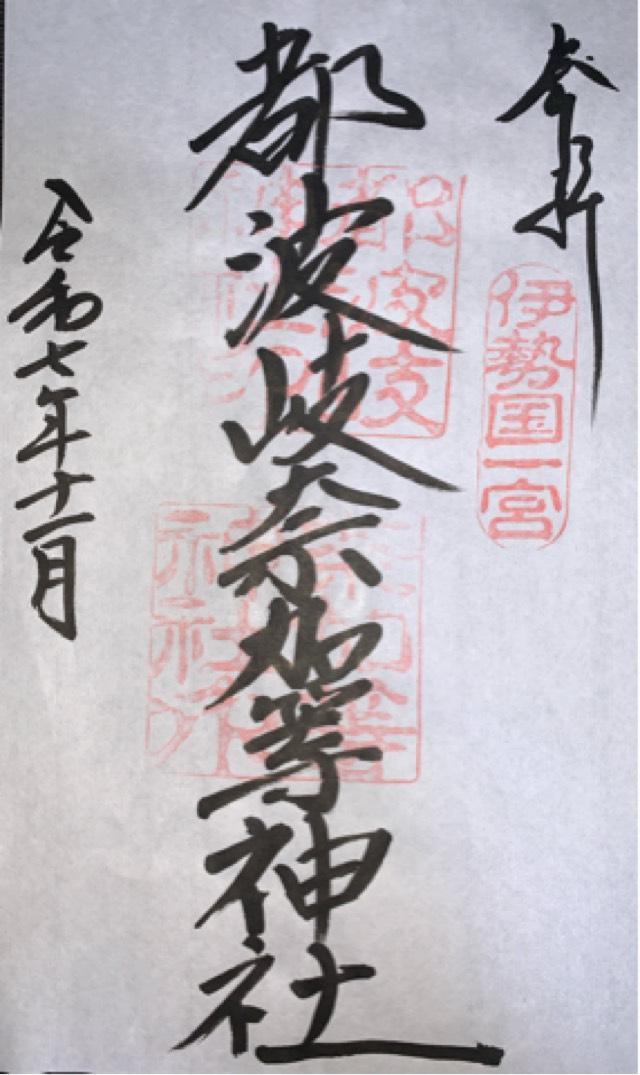 奉拝
伊勢国一宮
都波岐奈加等神社
令和七年十一月